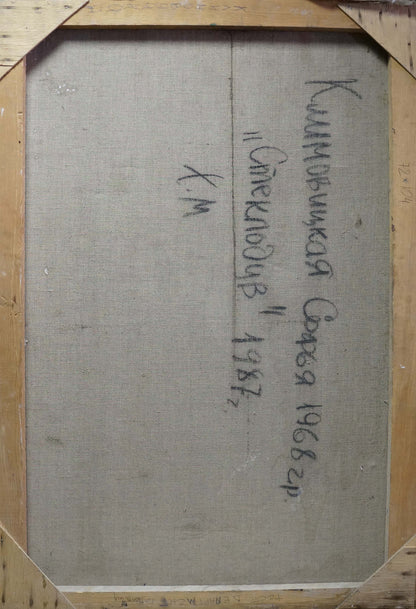 Климовицкая Софья 1968 г.р.
"Стеклодув" 1987 г.
Х.М